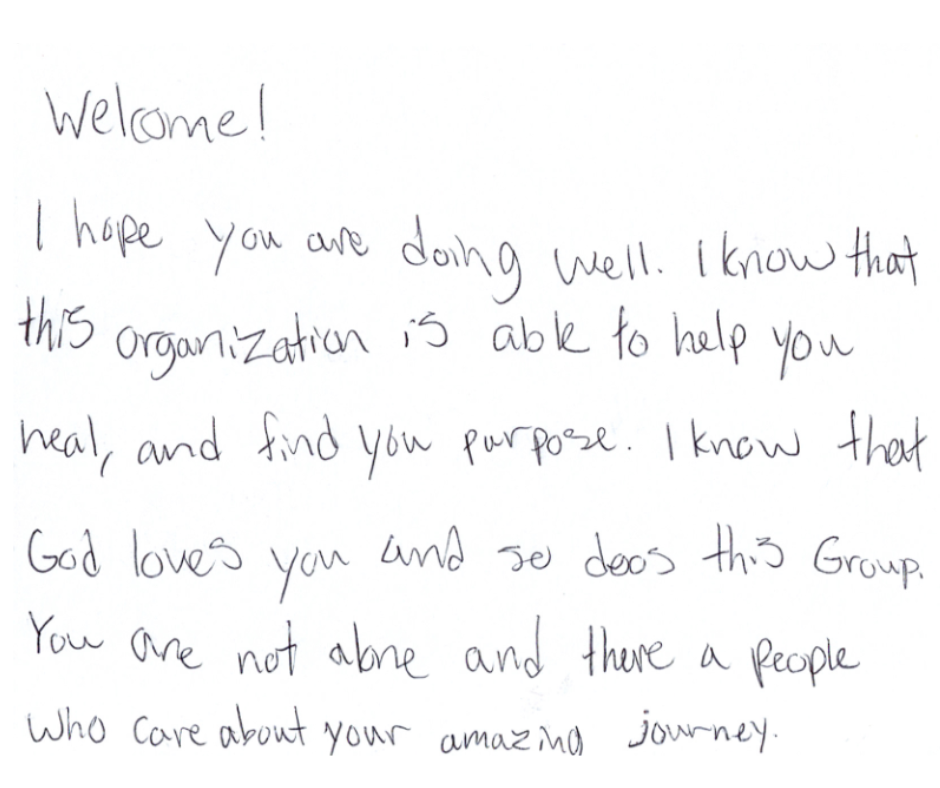 Welcome!
I hope you are doing well. I know that
this organization is able to help you
heal, and find you purpose. I know that
God loves you and so does this Group.
You are not alone and there a people
who care about your amazing journey.